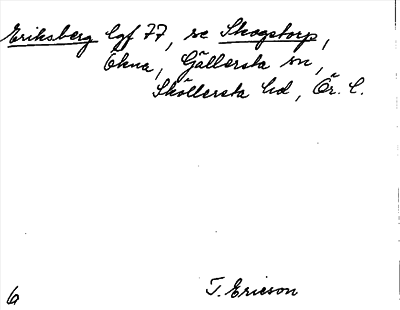 Eriksberg lgf 77, se Skogstorp,
Ökna, Gällersta sn,
Sköllersta hd, Ör. l.
6
T. Ericson